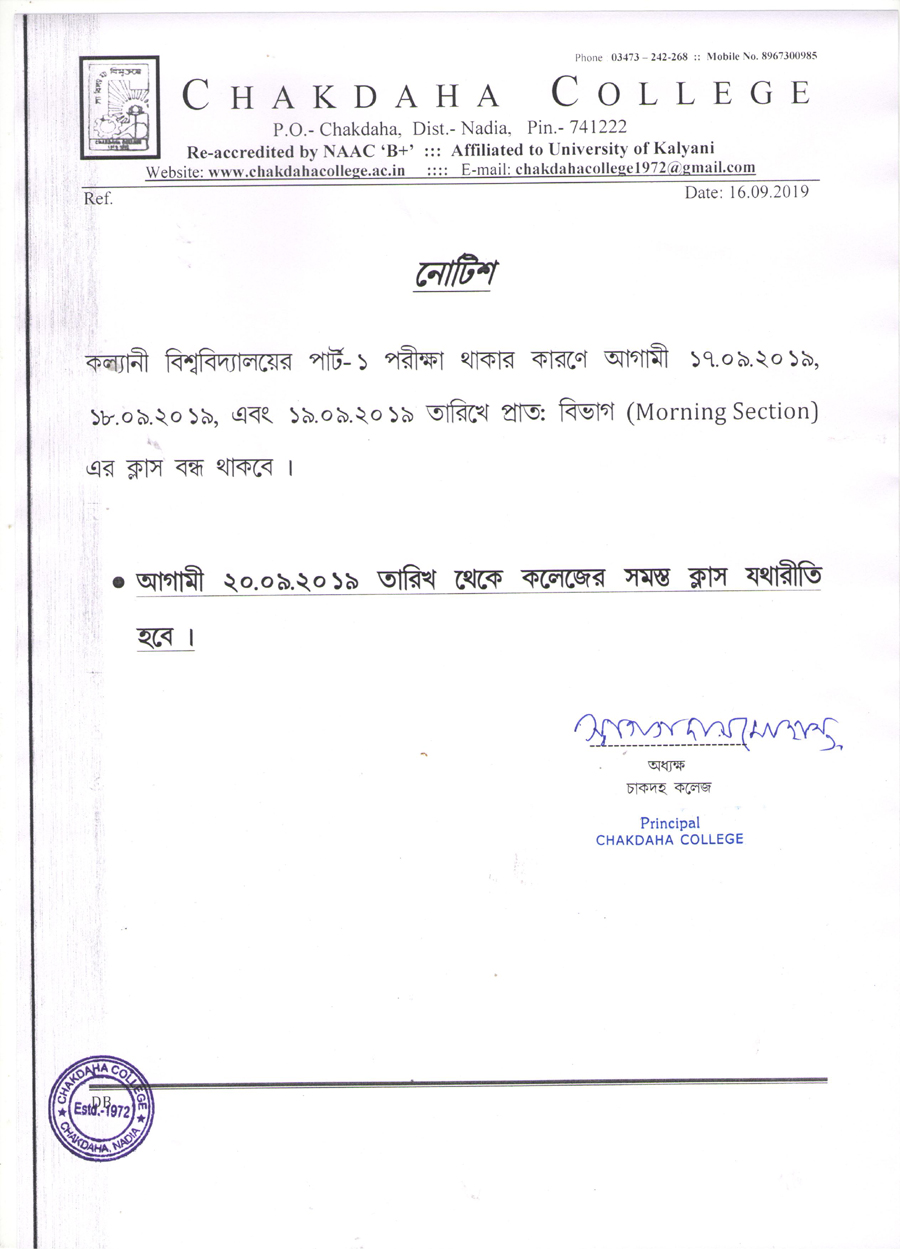 Phone 03473 – 242-268 :: Mobile No. 8967300985
CHAKDAHA COLLEGE
P.O.- Chakdaha, Dist.- Nadia, Pin.- 741222
Re-accredited by NAAC ‘B+’ ::: Affiliated to University of Kalyani
Website: www.chakdahacollege.ac.in :::: E-mail: chakdahacollege1972@gmail.com
Ref.
Date: 16.09.2019
নোটিশ
কল্যানী বিশ্ববিদ্যালয়ের পার্ট-১ পরীক্ষা থাকার কারণে আগামী ১৭.০৯.২০১৯,
১৮.০৯.২০১৯, এবং ১৯.০৯.২০১৯ তারিখে প্রাত: বিভাগ (Morning Section)
এর ক্লাস বন্ধ থাকবে ।
• আগামী ২০.০৯.২০১৯ তারিখ থেকে কলেজের সমস্ত ক্লাস যথারীতি
হবে ।
অধ্যক্ষ
চাকদহ কলেজ
Principal
CHAKDAHA COLLEGE
CHAKDAHA COLLEGE
DB
Estd.-1972
CHAKDAHA, NADIA